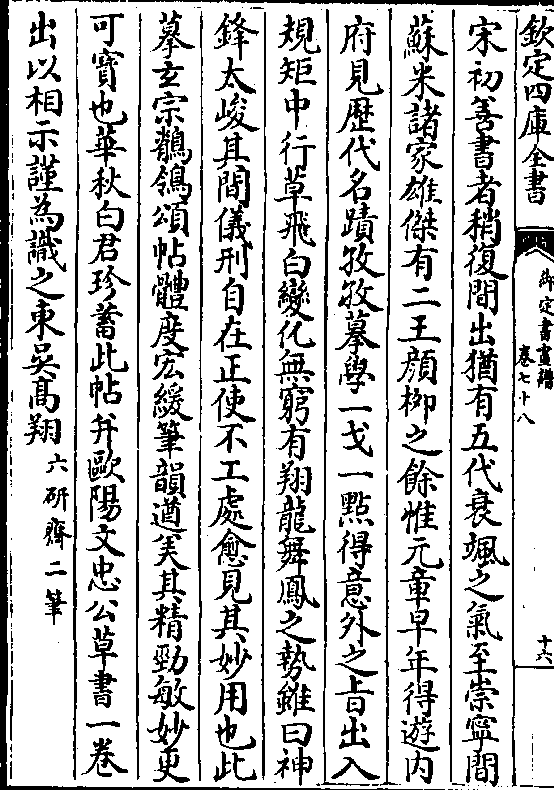 欽定四庫全書
御定書畫譜
卷七十八
十六
宋初善書者稍復間出猶有五代衰颯之氣至崇寧間
蘇米諸家雄傑有二王顔栁之餘惟元章早年得遊内
府見歴代名蹟孜孜摹學一戈一點得意外之旨出入
規矩中行草飛白變化無窮有翔龍舞鳳之勢雖曰神
鋒太峻其間儀刑自在正使不工處愈見其妙用也此
摹玄宗鶺鴒頌帖體度宏緩筆韻遒美其精勁敏妙更
可寳也華秋白君珍蓄此帖并歐陽文忠公草書一卷
出以相示謹為識之東吳髙翔六研齋二筆